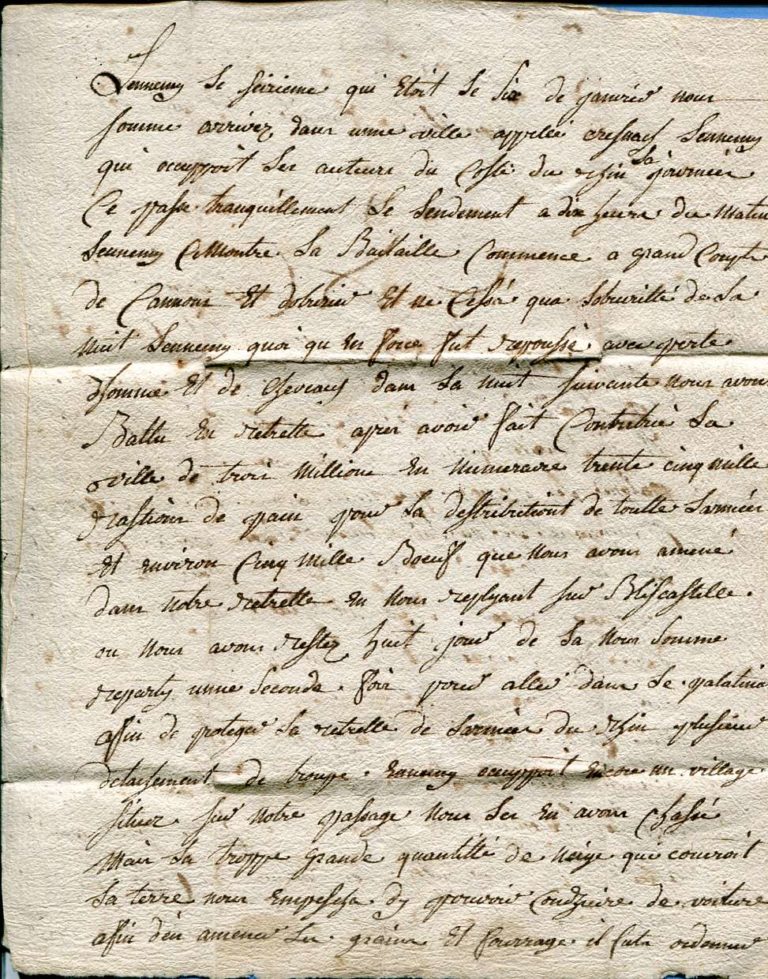 Lennemy le seizieme qui etoit le six de janvier nous
somme arrivez dans unne ville appellé cresnach Lennemy
qui occuppoit les auteure du Costé du Rhin la journéé
Ce passe tranquillement Le Lendement a dix heure du matin
Lennemy Cemontre La Battaille Commence a grand Coupt
de Cannons Et dobusier Et ne Cessa qua lobcurité de La
nuit Lennemy quoi qu en force fut repoussé avec perte
dhomme Et de Chevaux dans La nuit suivante nous avons
Battu En retrette apres avoir fait Contribué La
ville de trois millions En Numeraire trente cinq mille
rastions de pain pour La destributiont de toutte Larméé
Et environ Cinq mille Boeuf que nous avons amené
dans notre retrette En nous replyant sur Bliscastelle
ou nous avons restez huit jour de La nous somme
reparty unne seconde fois pour alle dans Le palatina
afin de proteger La retrette de Larméé du Rhin plusieur
detachement de troupe Ennemy occuppoit Encore un village
situez sur notre passage nous les En avons Chassé
Mais La troppe grande quantitté de neige qui couvroit
La terre nous Empescha dy pouvoir Conduire de voiture
afin den amener les grains Et fourrage il fut ordonné